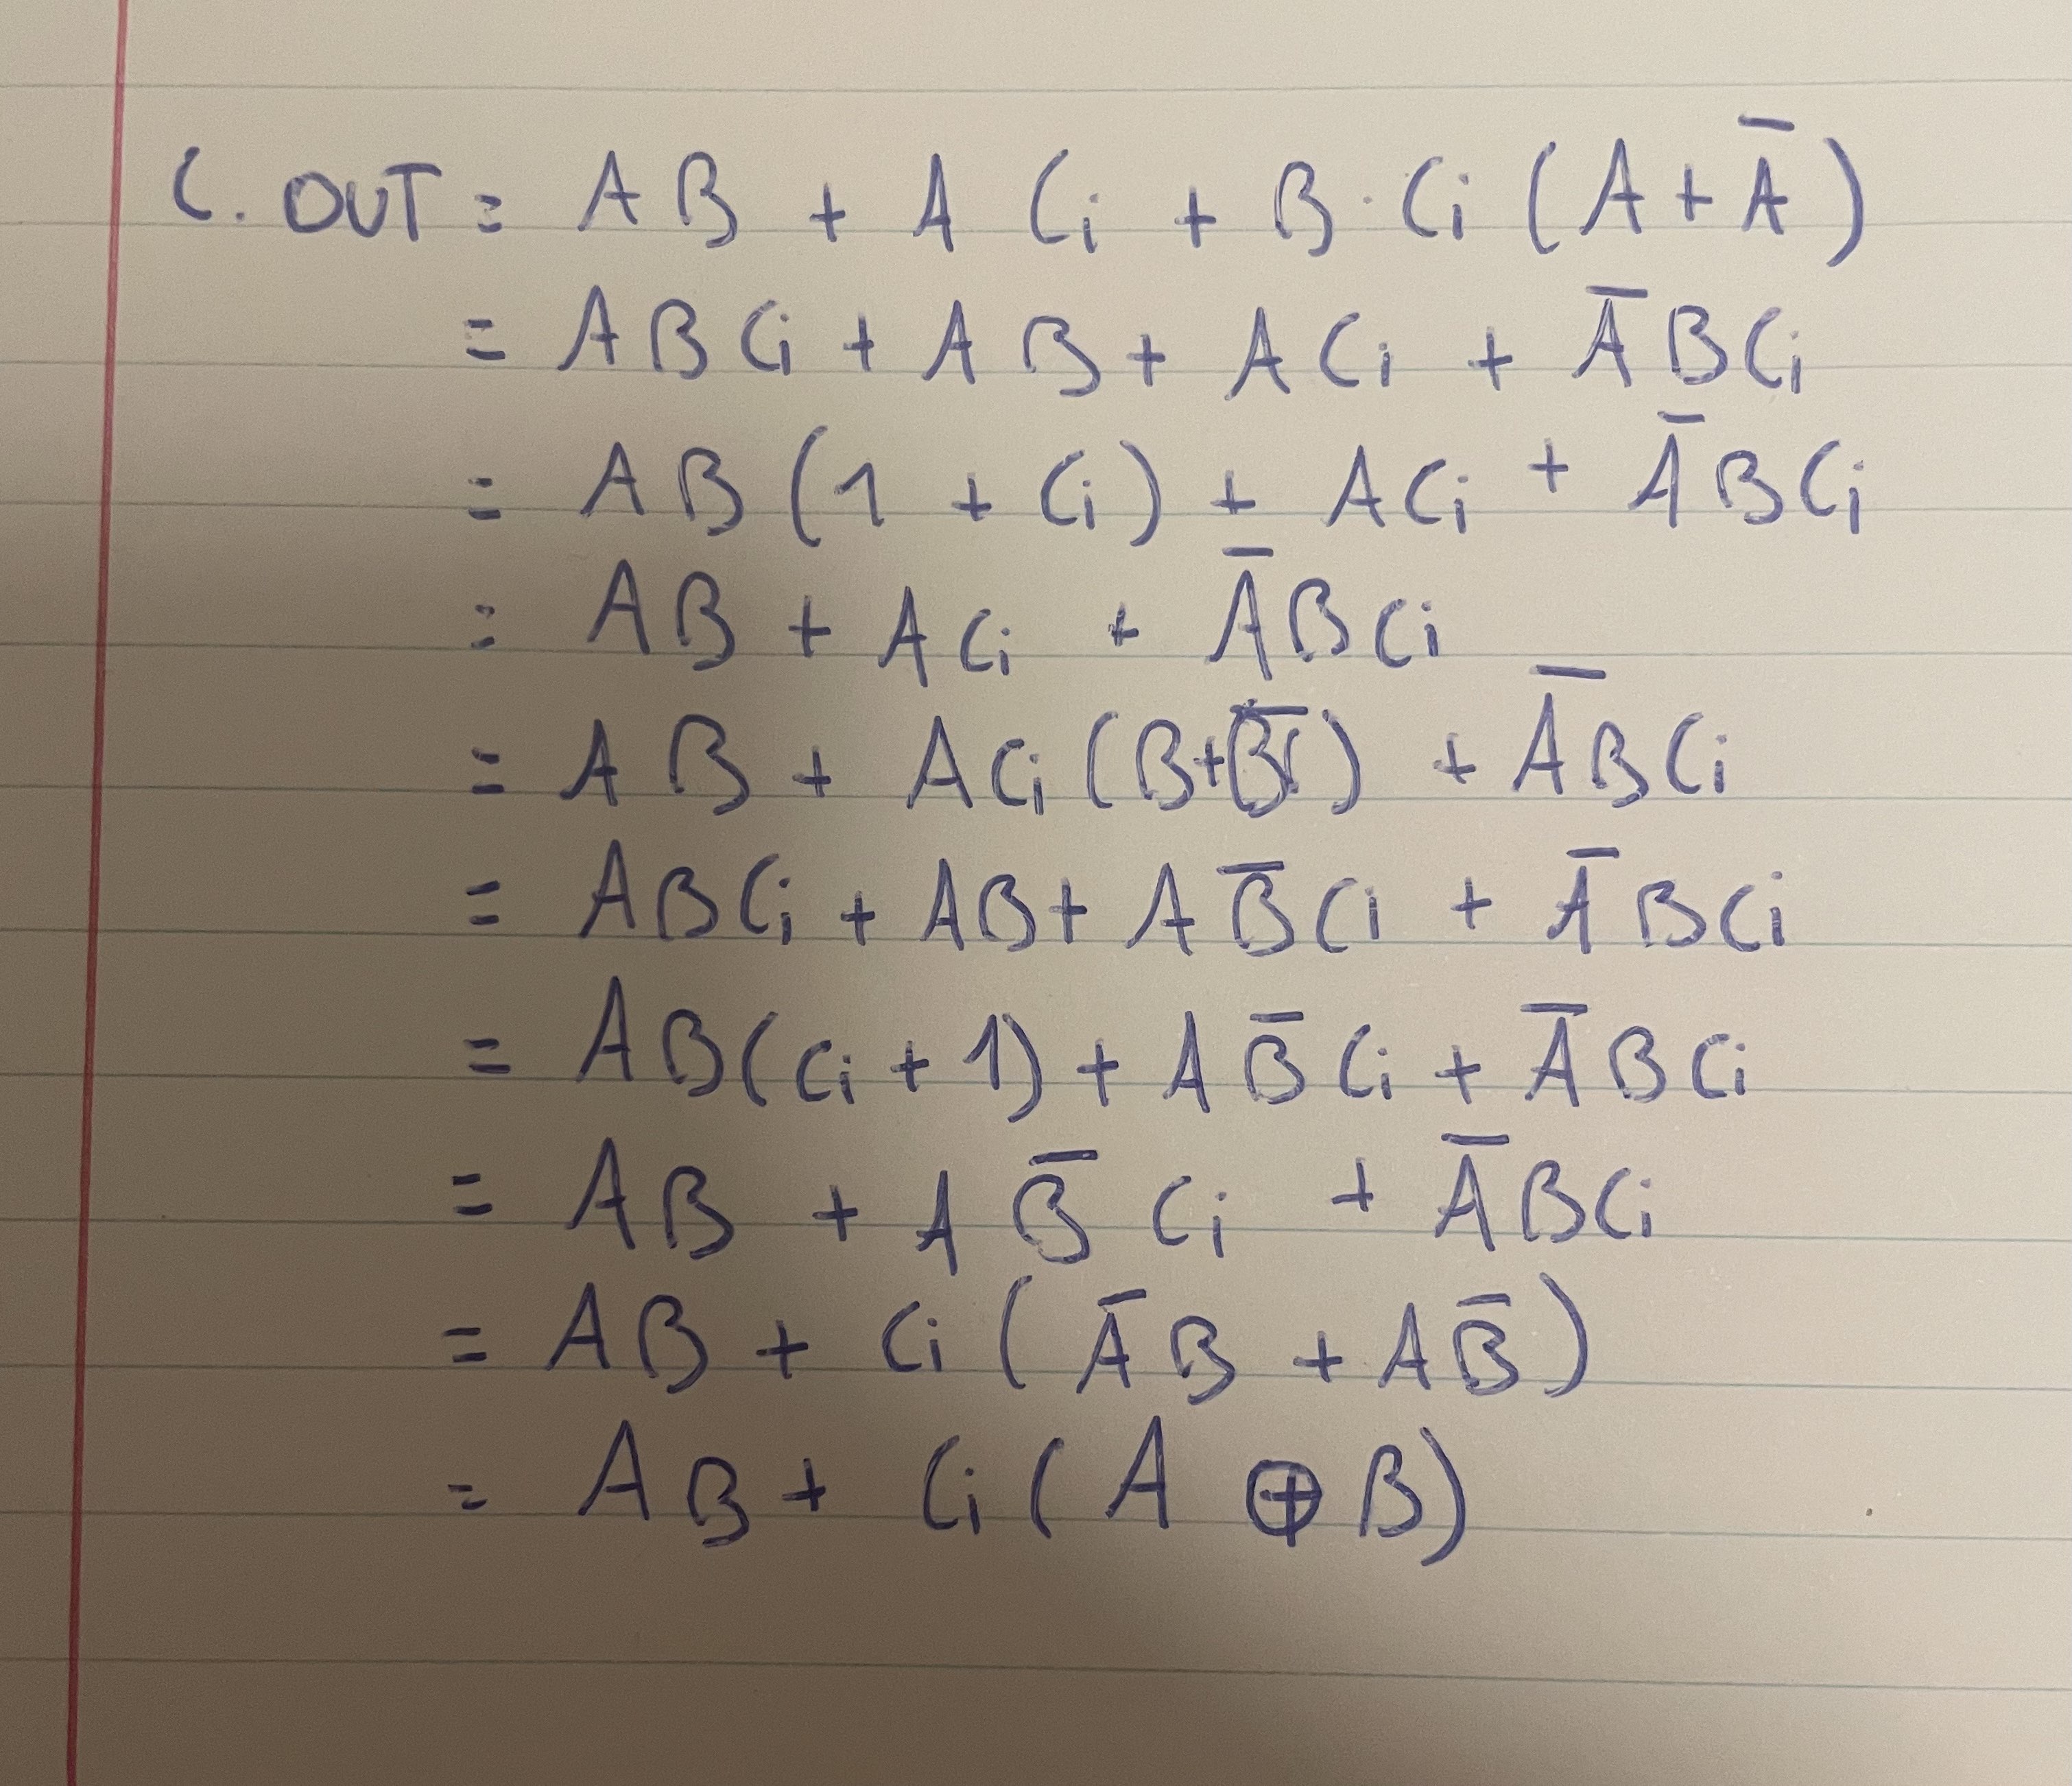 C. OUT = AB + A Ci + B · Ci (A + A̅)
= ABCi + AB + ACi + A̅BCi
= AB (1 + Ci) + ACi + A̅BCi
= AB + ACi + A̅BCi
= AB + ACi (B+B̅) + A̅BCi
= ABCi + AB + AB̅Ci + A̅BCi
= AB(Ci + 1) + AB̅Ci + A̅BCi
= AB + AB̅Ci + A̅BCi
= AB + Ci (A̅B + AB̅)
= AB + Ci (A ⊕ B)